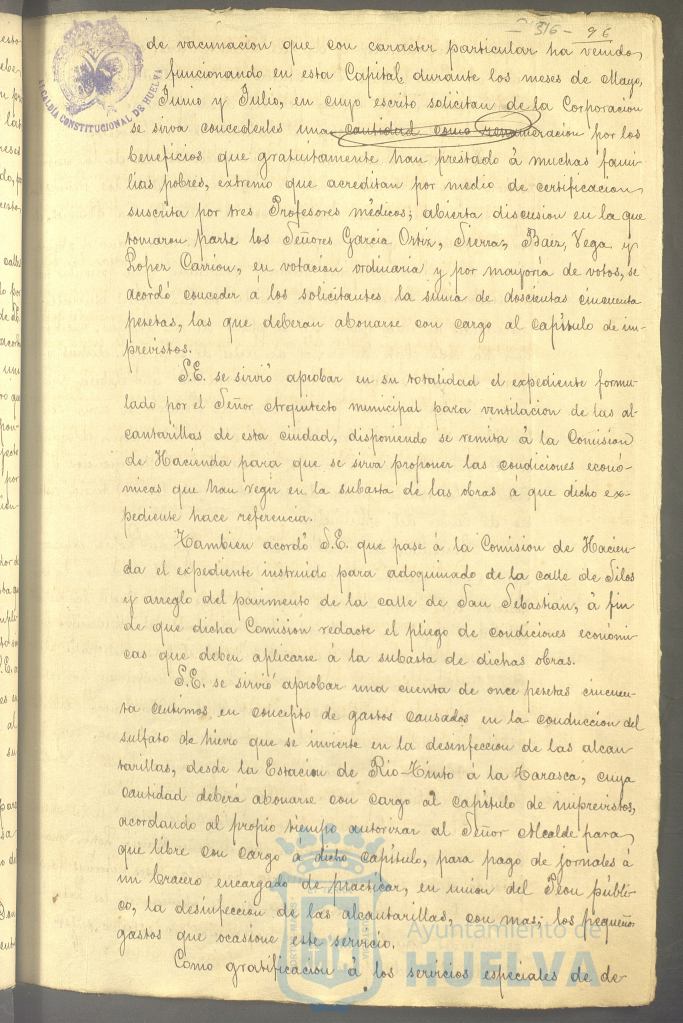 316 - 96
ALCALDIA CONSTITUCIONAL DE HUELVA
de vacunacion que con caracter particular ha venido
funcionando en esta Capital, durante los meses de Mayo,
Junio y Julio, en cuyo escrito solicitan de la Corporacion
se sirva concederles una cantidad como remuneracion por los
beneficios que gratuitamente han prestado á muchas fami-
lias pobres, extremo que acreditan por medio de certificacion
suscrita por tres Profesores médicos; abierta discusion en la que
tomaron parte los Señores García Ortiz, Sierra, Baez, Vega y
Lopez Carrion, en votacion ordinaria y por mayoría de votos, se
acordó conceder á los solicitantes la suma de doscientas cincuenta
pesetas, las que deberan abonarse con cargo al capítulo de im-
previstos.
S.E. se sirvió aprobar en su totalidad el expediente formu-
lado por el Señor Arquitecto municipal para ventilacion de las al-
cantarillas de esta ciudad, disponiendo se remita á la Comision
de Hacienda para que se sirva proponer las condiciones econó-
micas que han regir en la subasta de las obras á que dicho ex-
pediente hace referencia.
Tambien acordó S.E. que pase á la Comision de Hacien-
da el expediente instruido para adoquinado de la calle de Silos
y arreglo del pavimento de la calle de San Sebastian, á fin
de que dicha Comisión redacte el pliego de condiciones económi-
cas que deben aplicarse á la subasta de dichas obras.
S.E. se sirvió aprobar una cuenta de once pesetas cincuen-
ta centimos en concepto de gastos causados en la conduccion del
sulfato de hierro que se invierte en la desinfeccion de las alcan-
tarillas, desde la Estacion de Rio-Tinto á la Tarasca, cuya
cantidad deberá abonarse con cargo al capítulo de imprevistos,
acordando al propio tiempo autorizar al Señor Alcalde para
que libre con cargo a dicho capítulo, para pago de jornales á
un bracero encargado de practicar, en union del Peon públi-
co, la desinfeccion de las alcantarillas, con mas, los pequeños
gastos que ocasione este servicio.
Como gratificacion á los servicios especiales de de-
Ayuntamiento de
HUELVA